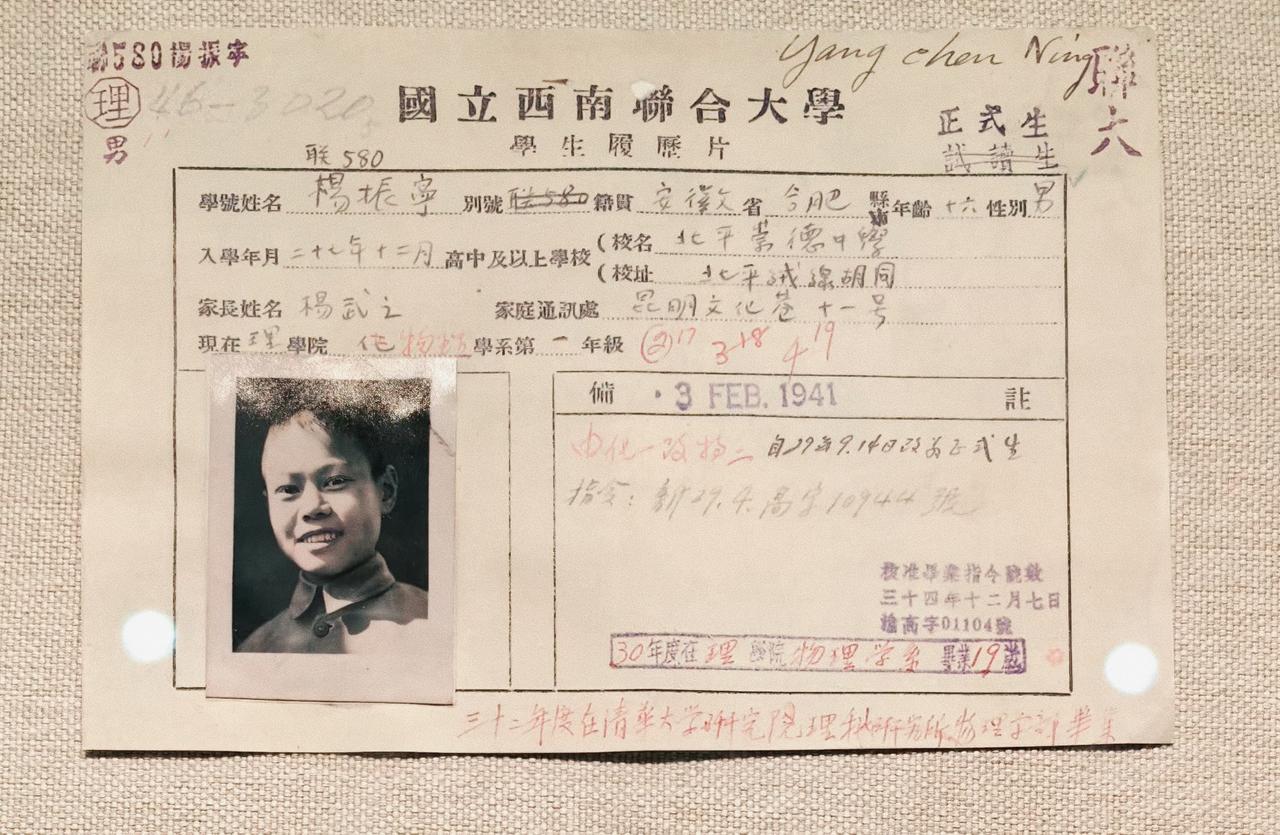 聯580楊振寧
Yang Chen Ning
聯六
理 46-3020
男
國立西南聯合大學
正式生
學生履歷片
試讀生
联580
學號姓名 楊振寧 別號 联580 籍貫 安徽 省 合肥 縣市 年齡 十六 性別 男
入學年月 二十七年十二月 高中及以上學校 (校名 北平崇德中學
(校址 北平绒線胡同
家長姓名 楊武之 家庭通訊處 昆明文化巷十一号
現在 理 學院 化 物理 學系第 一 年級 ②17 3-18 4 19
備 註
3 FEB. 1941
由化一改物二 自29年9.14日改为正式生
指令: 29.9. 高字10944 號
核准畢業指令號數
三十四年十二月七日
高字01104號
30年度在理學院物理学系畢業19歲
三十二年度在清華大学研究院理科研究所物理学部畢業